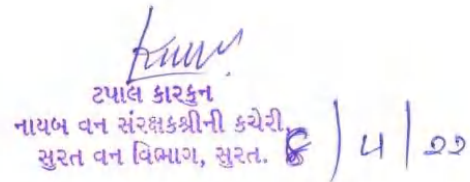 ટપાલ કારકુન
નાયબ વન સંરક્ષકશ્રીની કચેરી,
સુરત વન વિભાગ, સુરત. ૬/૫/૨૨